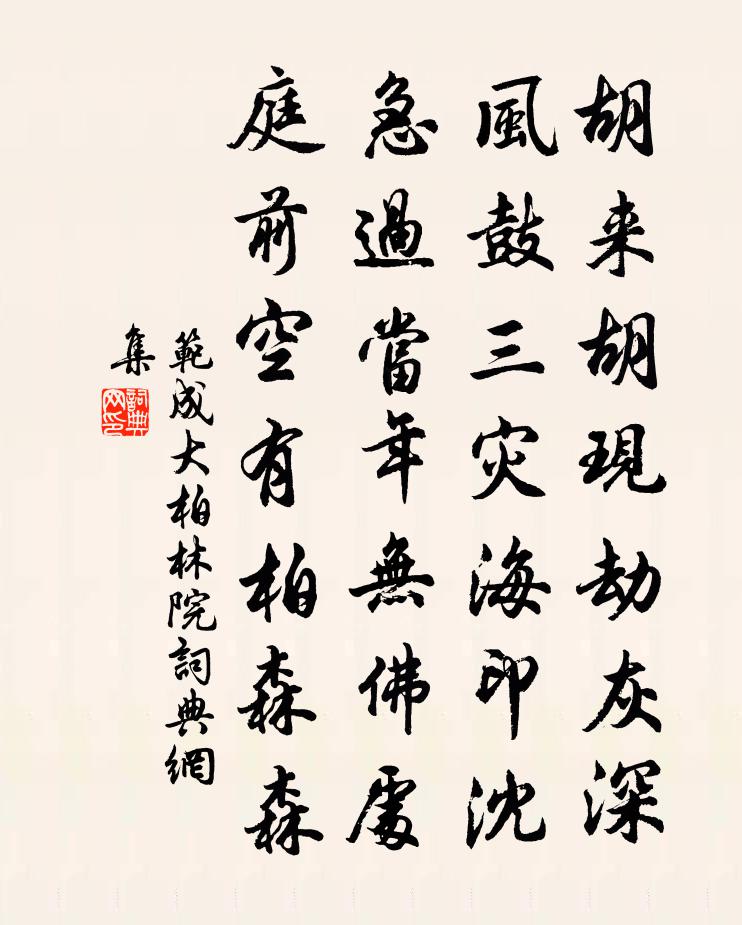 胡来胡現劫灰深
風鼓三灾海印沈
急過當年無佛處
庭前空有柏森森
範成大柏林院詞典網
集
詞典網印